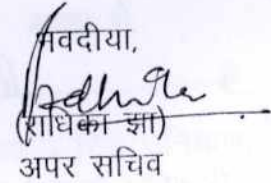 भवदीया,
(राधिका झा)
अपर सचिव